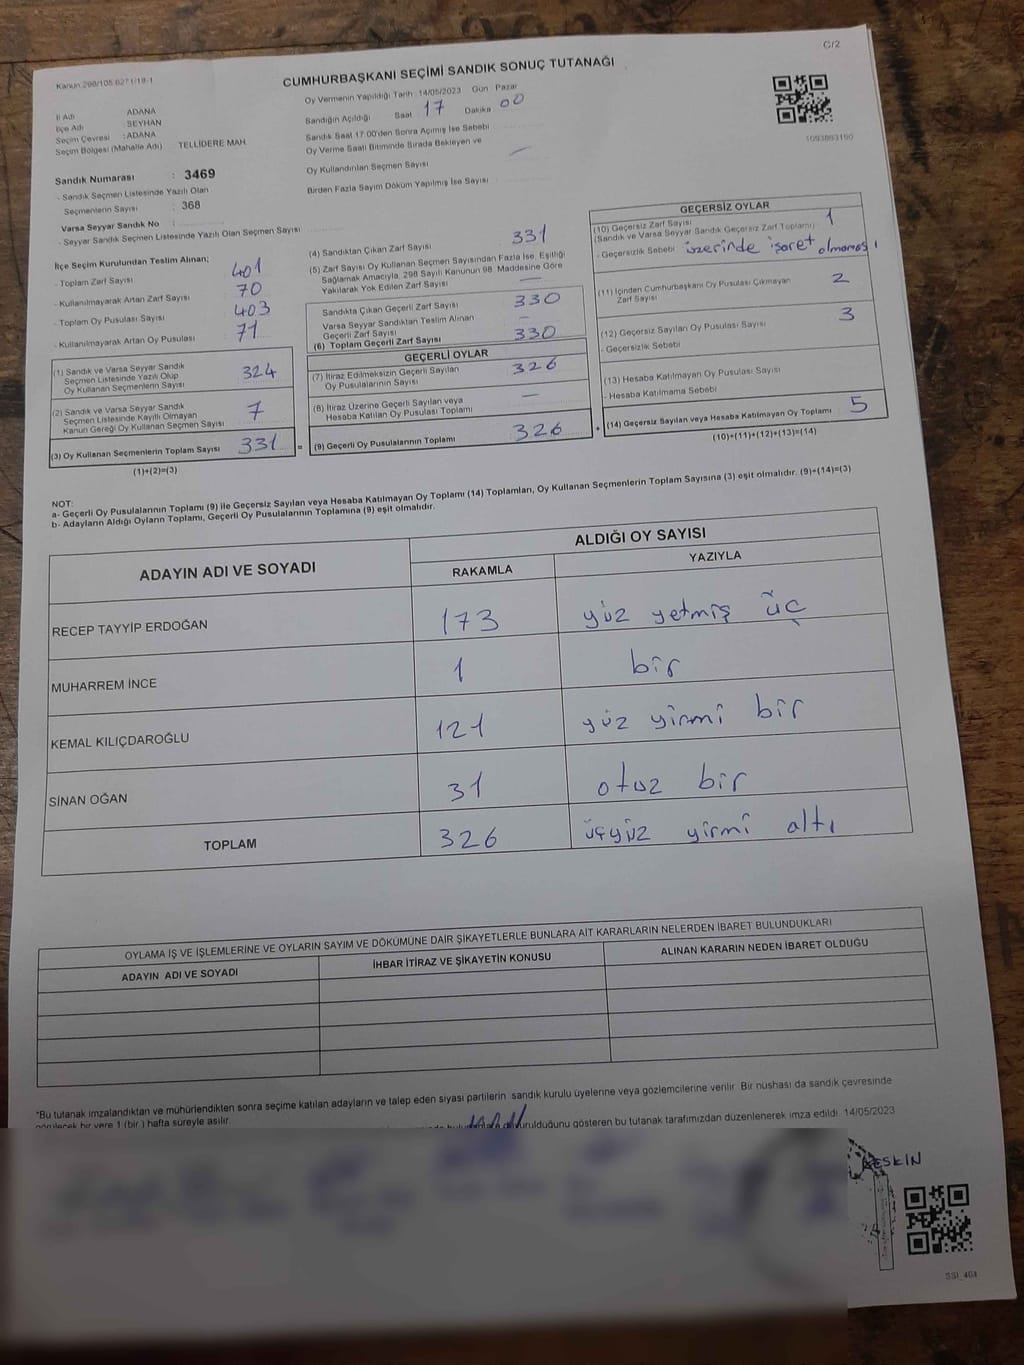 C/2
Kanun 298/105 6271/18-1
CUMHURBAŞKANI SEÇİMİ SANDIK SONUÇ TUTANAĞI
İl Adı : ADANA
İlçe Adı : SEYHAN
Seçim Çevresi : ADANA
Seçim Bölgesi (Mahalle Adı) TELLİDERE MAH.
Oy Vermenin Yapıldığı Tarih : 14/05/2023 Gün Pazar
Sandığın Açıldığı Saat 17 Dakika 00
Sandık Saat 17.00'den Sonra Açımış İse Sebebi
Oy Verme Saati Bitiminde Sırada Bekleyen ve
Oy Kullandırılan Seçmen Sayısı —
Birden Fazla Sayım Döküm Yapılmış İse Sayısı
Sandık Numarası : 3469
- Sandık Seçmen Listesinde Yazılı Olan
Seçmenlerin Sayısı : 368
Varsa Seyyar Sandık No :
- Seyyar Sandık Seçmen Listesinde Yazılı Olan Seçmen Sayısı
İlçe Seçim Kurulundan Teslim Alınan;
- Toplam Zarf Sayısı 401
- Kullanılmayarak Artan Zarf Sayısı 70
- Toplam Oy Pusulası Sayısı 403
- Kullanılmayarak Artan Oy Pusulası 71
(1) Sandık ve Varsa Seyyar Sandık
Seçmen Listesinde Yazılı Olup
Oy Kullanan Seçmenlerin Sayısı 324
(2) Sandık ve Varsa Seyyar Sandık
Seçmen Listesinde Kayıtlı Olmayan
Kanun Gereği Oy Kullanan Seçmen Sayısı 7
(3) Oy Kullanan Seçmenlerin Toplam Sayısı 331 =
(1)+(2)=(3)
(4) Sandıktan Çıkan Zarf Sayısı 331
(5) Zarf Sayısı Oy Kullanan Seçmen Sayısından Fazla İse, Eşitliği
Sağlamak Amacıyla, 298 Sayılı Kanunun 98. Maddesine Göre
Yakılarak Yok Edilen Zarf Sayısı —
Sandıkta Çıkan Geçerli Zarf Sayısı 330
Varsa Seyyar Sandıktan Teslim Alınan
Geçerli Zarf Sayısı —
(6) Toplam Geçerli Zarf Sayısı 330
GEÇERLİ OYLAR
(7) İtiraz Edilmeksizin Geçerli Sayılan
Oy Pusulalarının Sayısı 326
(8) İtiraz Üzerine Geçerli Sayılan veya
Hesaba Katılan Oy Pusulası Toplamı —
(9) Geçerli Oy Pusulalarının Toplamı 326 +
GEÇERSİZ OYLAR
(10) Geçersiz Zarf Sayısı
(Sandık ve Varsa Seyyar Sandık Geçersiz Zarf Toplamı) 1
- Geçersizlik Sebebi üzerinde işaret olması
(11) İçinden Cumhurbaşkanı Oy Pusulası Çıkmayan
Zarf Sayısı 2
(12) Geçersiz Sayılan Oy Pusulası Sayısı 3
- Geçersizlik Sebebi
(13) Hesaba Katılmayan Oy Pusulası Sayısı
- Hesaba Katılmama Sebebi
(14) Geçersiz Sayılan veya Hesaba Katılmayan Oy Toplamı 5
(10)+(11)+(12)+(13)=(14)
NOT:
a- Geçerli Oy Pusulalarının Toplamı (9) ile Geçersiz Sayılan veya Hesaba Katılmayan Oy Toplamı (14) Toplamları, Oy Kullanan Seçmenlerin Toplam Sayısına (3) eşit olmalıdır. (9)+(14)=(3)
b- Adayların Aldığı Oyların Toplamı, Geçerli Oy Pusulalarının Toplamına (9) eşit olmalıdır.
ADAYIN ADI VE SOYADI
ALDIĞI OY SAYISI
RAKAMLA YAZIYLA
RECEP TAYYİP ERDOĞAN 173 yüz yetmiş üç
MUHARREM İNCE 1 bir
KEMAL KILIÇDAROĞLU 121 yüz yirmi bir
SİNAN OĞAN 31 otuz bir
TOPLAM 326 üçyüz yirmi altı
OYLAMA İŞ VE İŞLEMLERİNE VE OYLARIN SAYIM VE DÖKÜMÜNE DAİR ŞİKAYETLERLE BUNLARA AİT KARARLARIN NELERDEN İBARET BULUNDUKLARI
ADAYIN ADI VE SOYADI İHBAR İTİRAZ VE ŞİKAYETİN KONUSU ALINAN KARARIN NEDEN İBARET OLDUĞU
"Bu tutanak imzalandıktan ve mühürlendikten sonra seçime katılan adayların ve talep eden siyasi partilerin sandık kurulu üyelerine veya gözlemcilerine verilir. Bir nushası da sandık çevresinde
görülecek bir yere 1 (bir ) hafta süreyle asılır.
durulduğunu gösteren bu tutanak tarafımızdan düzenlenerek imza edildi. 14/05/2023
KESKİN
SSI_464